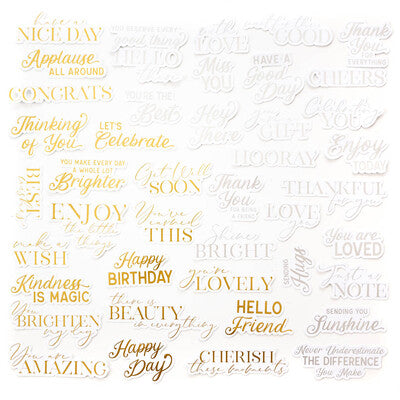 have a
NICE DAY
YOU DESERVE EVERY
good thing
HELLO
LOVE
GOOD
Thank
You
Applause
ALL AROUND
Miss
YOU
HAVE A
Good
Day
EVERYTHING
CHEERS
CONGRATS
YOU'RE THE
Best
Hey
there
GIFT
Celebrate
You
Thinking
of You
LET'S
Celebrate
HOORAY
Enjoy
TODAY
YOU MAKE EVERY DAY
A WHOLE LOT
Brighter
Get Well
SOON
Thank
You
THANKFUL
for you
BEST
ENJOY
the little
things
You've
earned
THIS
LOVE
you
make a
WISH
SHINE
BRIGHT
You are
LOVED
Happy
BIRTHDAY
SENDING
Hugs
Kindness
IS MAGIC
you're
LOVELY
Just a
NOTE
You
BRIGHTEN
my day
there is
BEAUTY
in everything
HELLO
Friend
SENDING YOU
Sunshine
You are
AMAZING
Happy
Day
CHERISH
these moments
Never Underestimate
THE DIFFERENCE
You Make